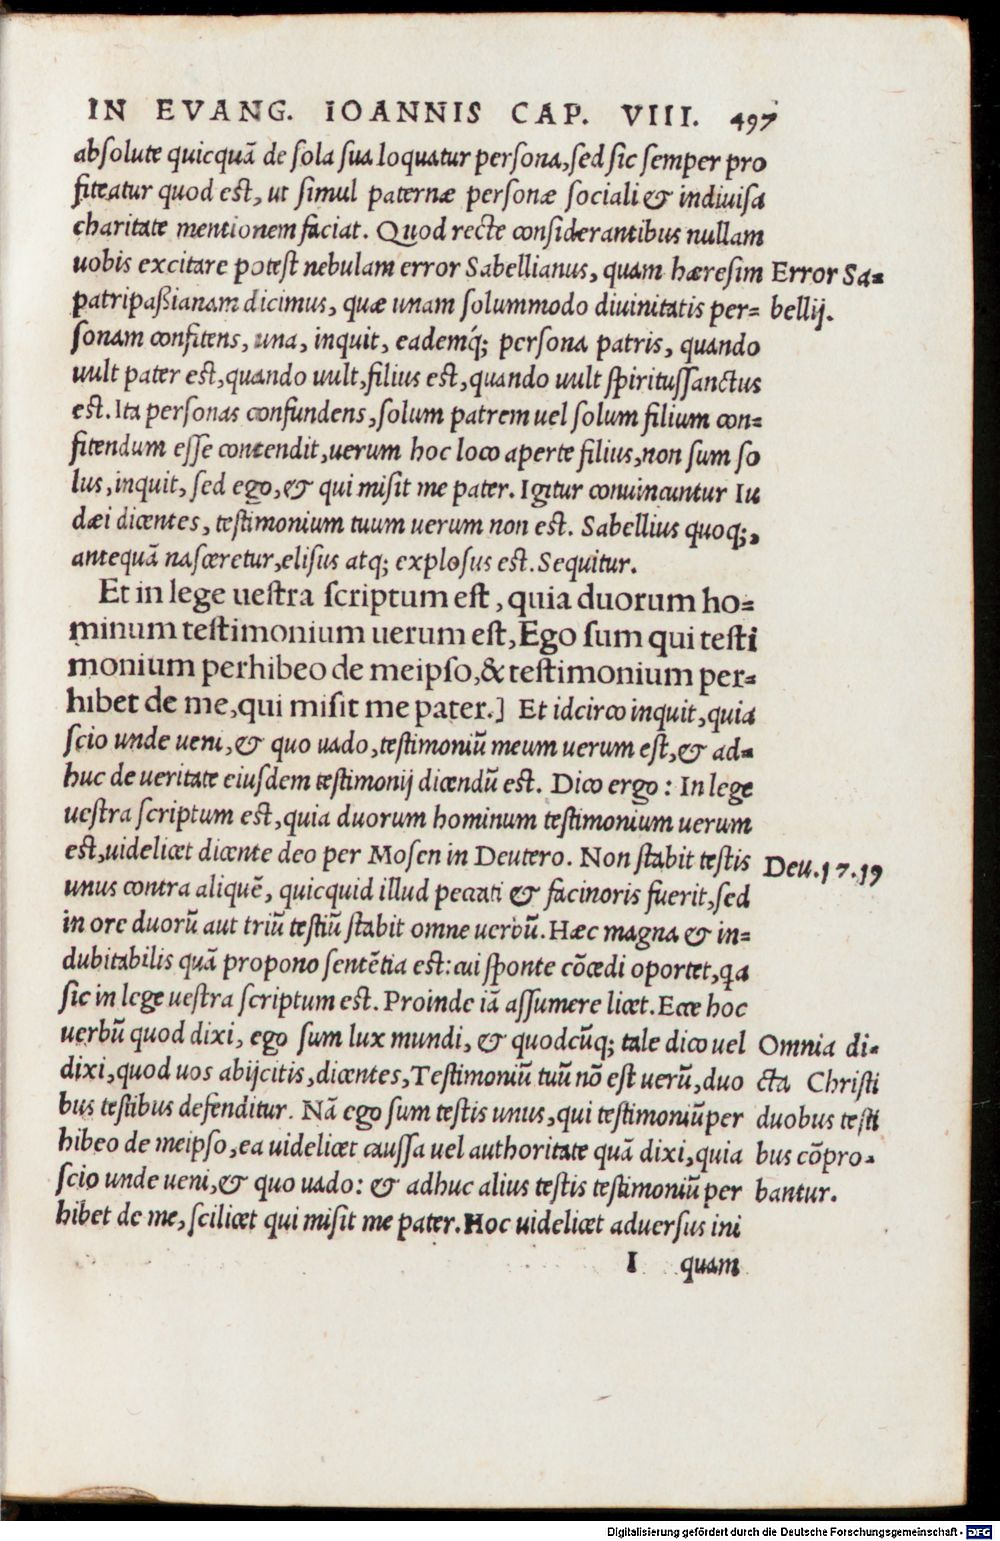 IN EVANG. IOANNIS CAP. VIII. 497
absolute quicquã de sola sua loquatur persona, sed sic semper pro
fiteatur quod est, ut simul paternæ personæ sociali & indiuisa
charitate mentionem faciat. Quod recte considerantibus nullam
uobis excitare potest nebulam error Sabellianus, quam hæresim
Error Sa=
patripaßianam dicimus, quæ unam solummodo diuinitatis per=
bellij.
sonam confitens, una, inquit, eademq́; persona patris, quando
uult pater est, quando uult, filius est, quando uult spiritussanctus
est. Ita personas confundens, solum patrem uel solum filium con=
fitendum esse contendit, uerum hoc loco aperte filius, non sum so
lus, inquit, sed ego, & qui misit me pater. Igitur conuincuntur Iu
dæi dicentes, testimonium tuum uerum non est. Sabellius quoq;,
antequã nasceretur, elisus atq; explosus est. Sequitur.
Et in lege uestra scriptum est, quia duorum ho=
minum testimonium uerum est, Ego sum qui testi
monium perhibeo de meipso, & testimonium per=
hibet de me, qui misit me pater.] Et idcirco inquit, quia
scio unde ueni, & quo uado, testimoniũ meum uerum est, & ad=
huc de ueritate eiusdem testimonij dicendũ est. Dico ergo: In lege
uestra scriptum est, quia duorum hominum testimonium uerum
est, uidelicet dicente deo per Mosen in Deutero. Non stabit testis
Deu. 17. 19
unus contra aliquẽ, quicquid illud peccati & facinoris fuerit, sed
in ore duorũ aut triũ testiũ stabit omne uerbũ. Hæc magna & in=
dubitabilis quã propono sentẽtia est: cui sponte cõcedi oportet, qa
sic in lege uestra scriptum est. Proinde iã assumere licet. Ecce hoc
uerbũ quod dixi, ego sum lux mundi, & quodcũq; tale dico uel
Omnia di=
dixi, quod uos abijcitis, dicentes, Testimoniũ tuũ nõ est uerũ, duo
cta Christi
bus testibus defenditur. Nã ego sum testis unus, qui testimoniũ per
duobus testi
hibeo de meipso, ea uidelicet caussa uel authoritate quã dixi, quia
bus cõpro=
scio unde ueni, & quo uado: & adhuc alius testis testimoniũ per
bantur.
hibet de me, scilicet qui misit me pater. Hoc uidelicet aduersus ini
I quam
Digitalisierung gefördert durch die Deutsche Forschungsgemeinschaft - DFG